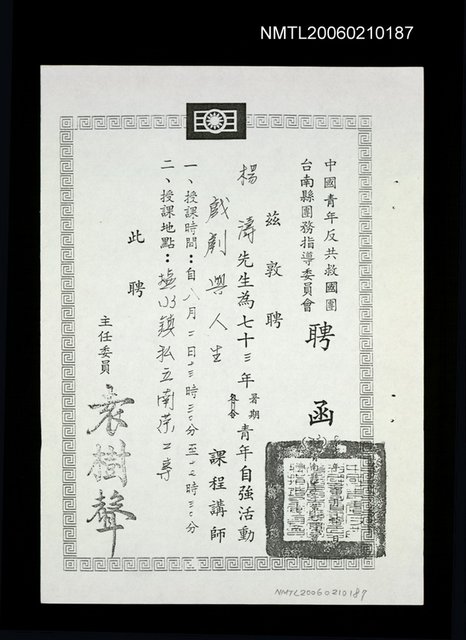 NMTL20060210187
中國青年反共救國團
台南縣團務指導委員會
聘函
茲敦聘
楊濤先生為七十三年暑期青年自強活動
戲劇與人生 課程講師
一、授課時間：自八月二日十三時三十分至十七時三十分
二、授課地點：鹽水鎮私立南榮工專
此聘
主任委員
袁樹聲
NMTL20060210187